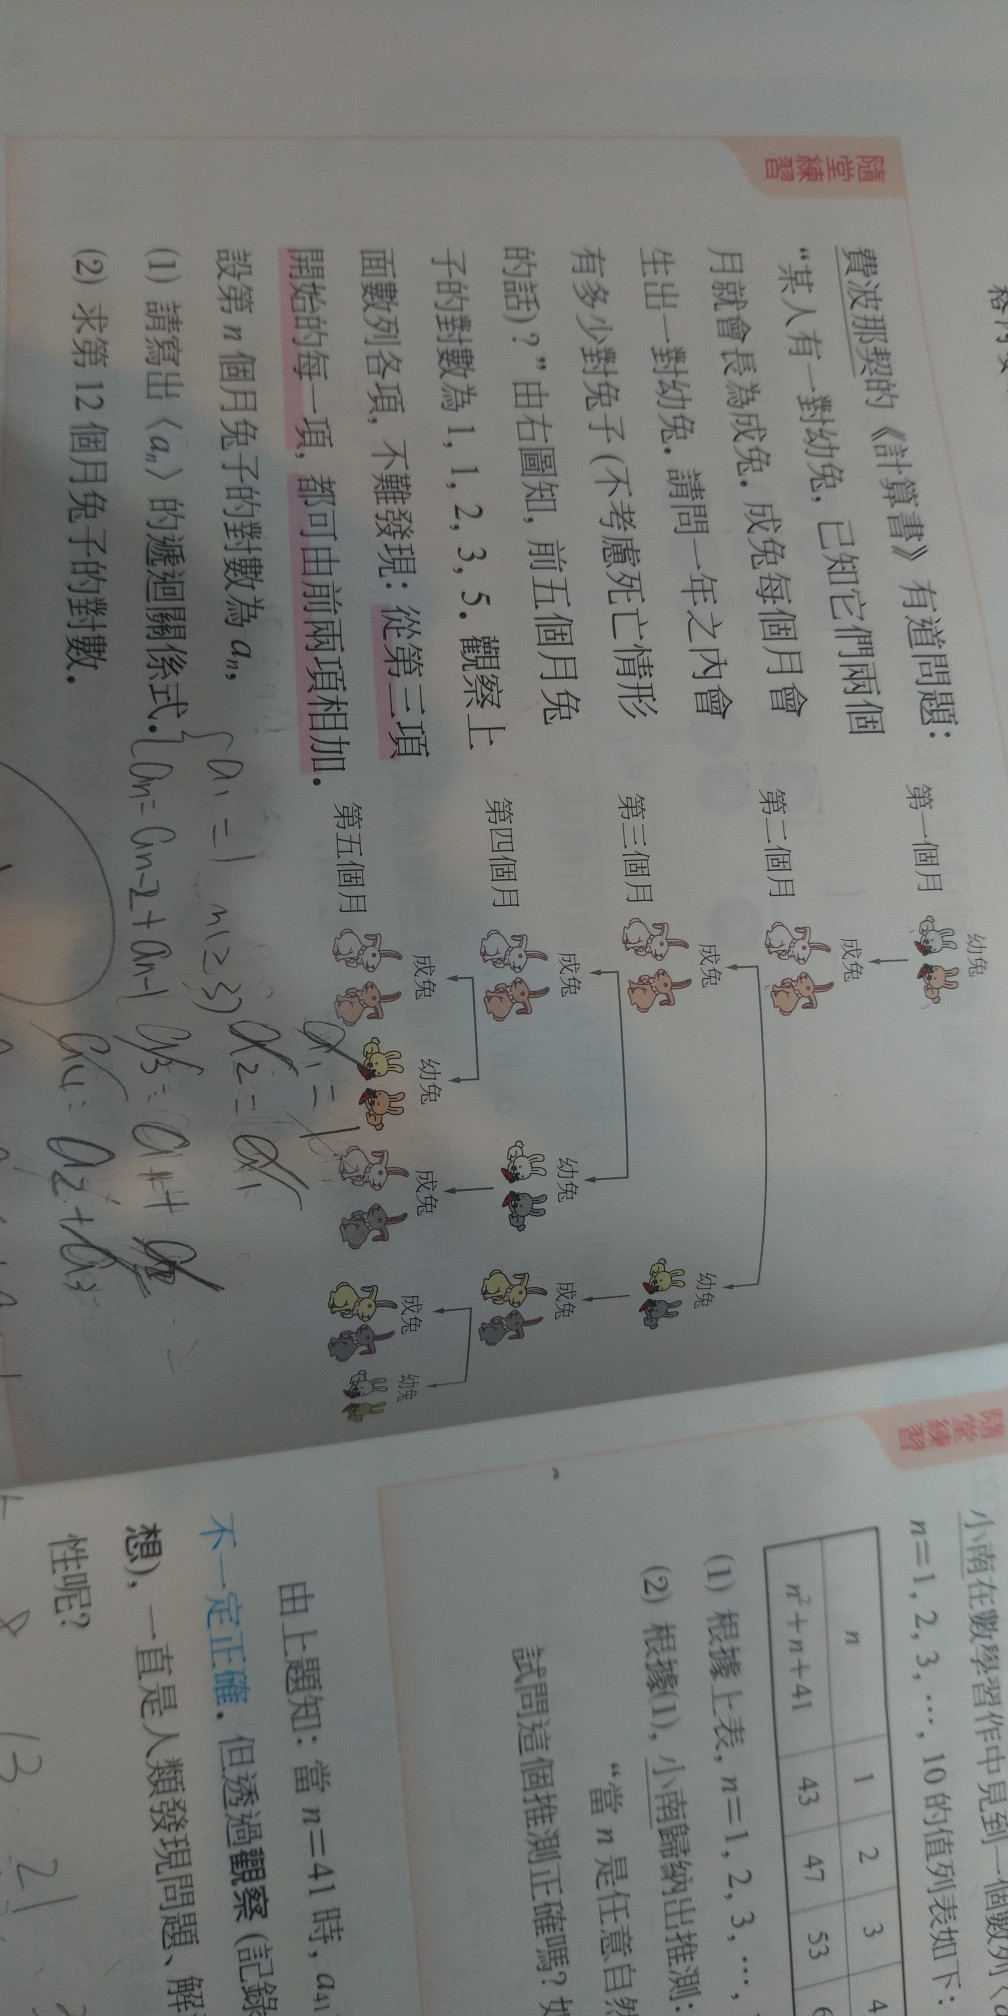 隨堂練習
費波那契的《計算書》有道問題：
“某人有一對幼兔，已知它們兩個
月就會長為成兔．成兔每個月會
生出一對幼兔．請問一年之內會
有多少對兔子（不考慮死亡情形
的話）？”由右圖知，前五個月兔
子的對數為 1，1，2，3，5．觀察上
面數列各項，不難發現：從第三項
開始的每一項，都可由前兩項相加．
設第 n 個月兔子的對數為 aₙ，
(1) 請寫出〈aₙ〉的遞迴關係式．
(2) 求第 12 個月兔子的對數．
幼兔
第一個月
成兔
第二個月
成兔 幼兔
第三個月
成兔 幼兔 成兔
第四個月
成兔 幼兔 成兔 成兔 幼兔
第五個月
a₁ = 1
n≥3)
aₙ = aₙ₋₂ + aₙ₋₁
a₁ = 1
a₂ =
隨堂練習
小南在數學習作中見到一個數列
n＝1，2，3，…，10 的值列表如下：
n 1 2 3 4
n²＋n＋41 43 47 53 6
(1) 根據上表，n＝1，2，3，…，
(2) 根據(1)，小南歸納出推測：
“當 n 是任意自然
試問這個推測正確嗎？如
由上題知：當 n＝41 時，a₄₁
不一定正確．但透過觀察（記錄
想），一直是人類發現問題、解
性呢？
8 13 21